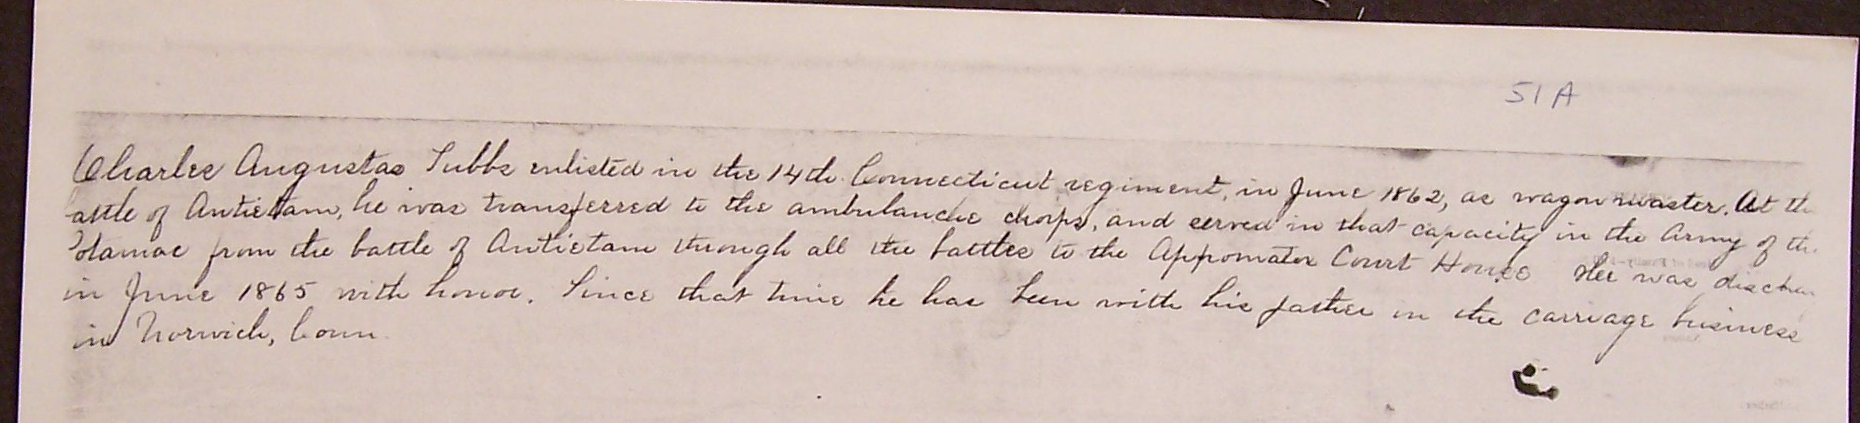 51A
Charles Augustas Tubbs enlisted in the 14th Connecticut regiment, in June 1862, as wagon master. At th
attle of Antietam, he was transferred to the ambulanche chorps, and served in that capacity in the Army of th
Potamac from the battle of Antietam through all the battles to the Appomatox Court House Hee was dischar
in June 1865 with honor. Since that time he has been with his father in the carriage business
in Norwich, Conn